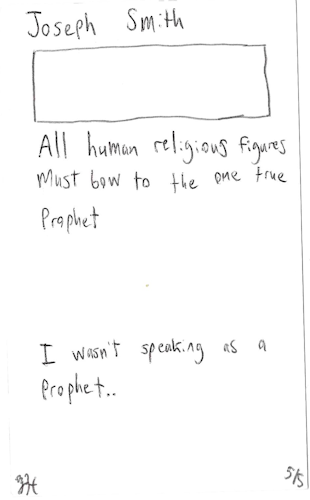 Joseph Smith
All human religious figures
Must bow to the one true
Prophet
I wasn't speaking as a
Prophet..
5/5